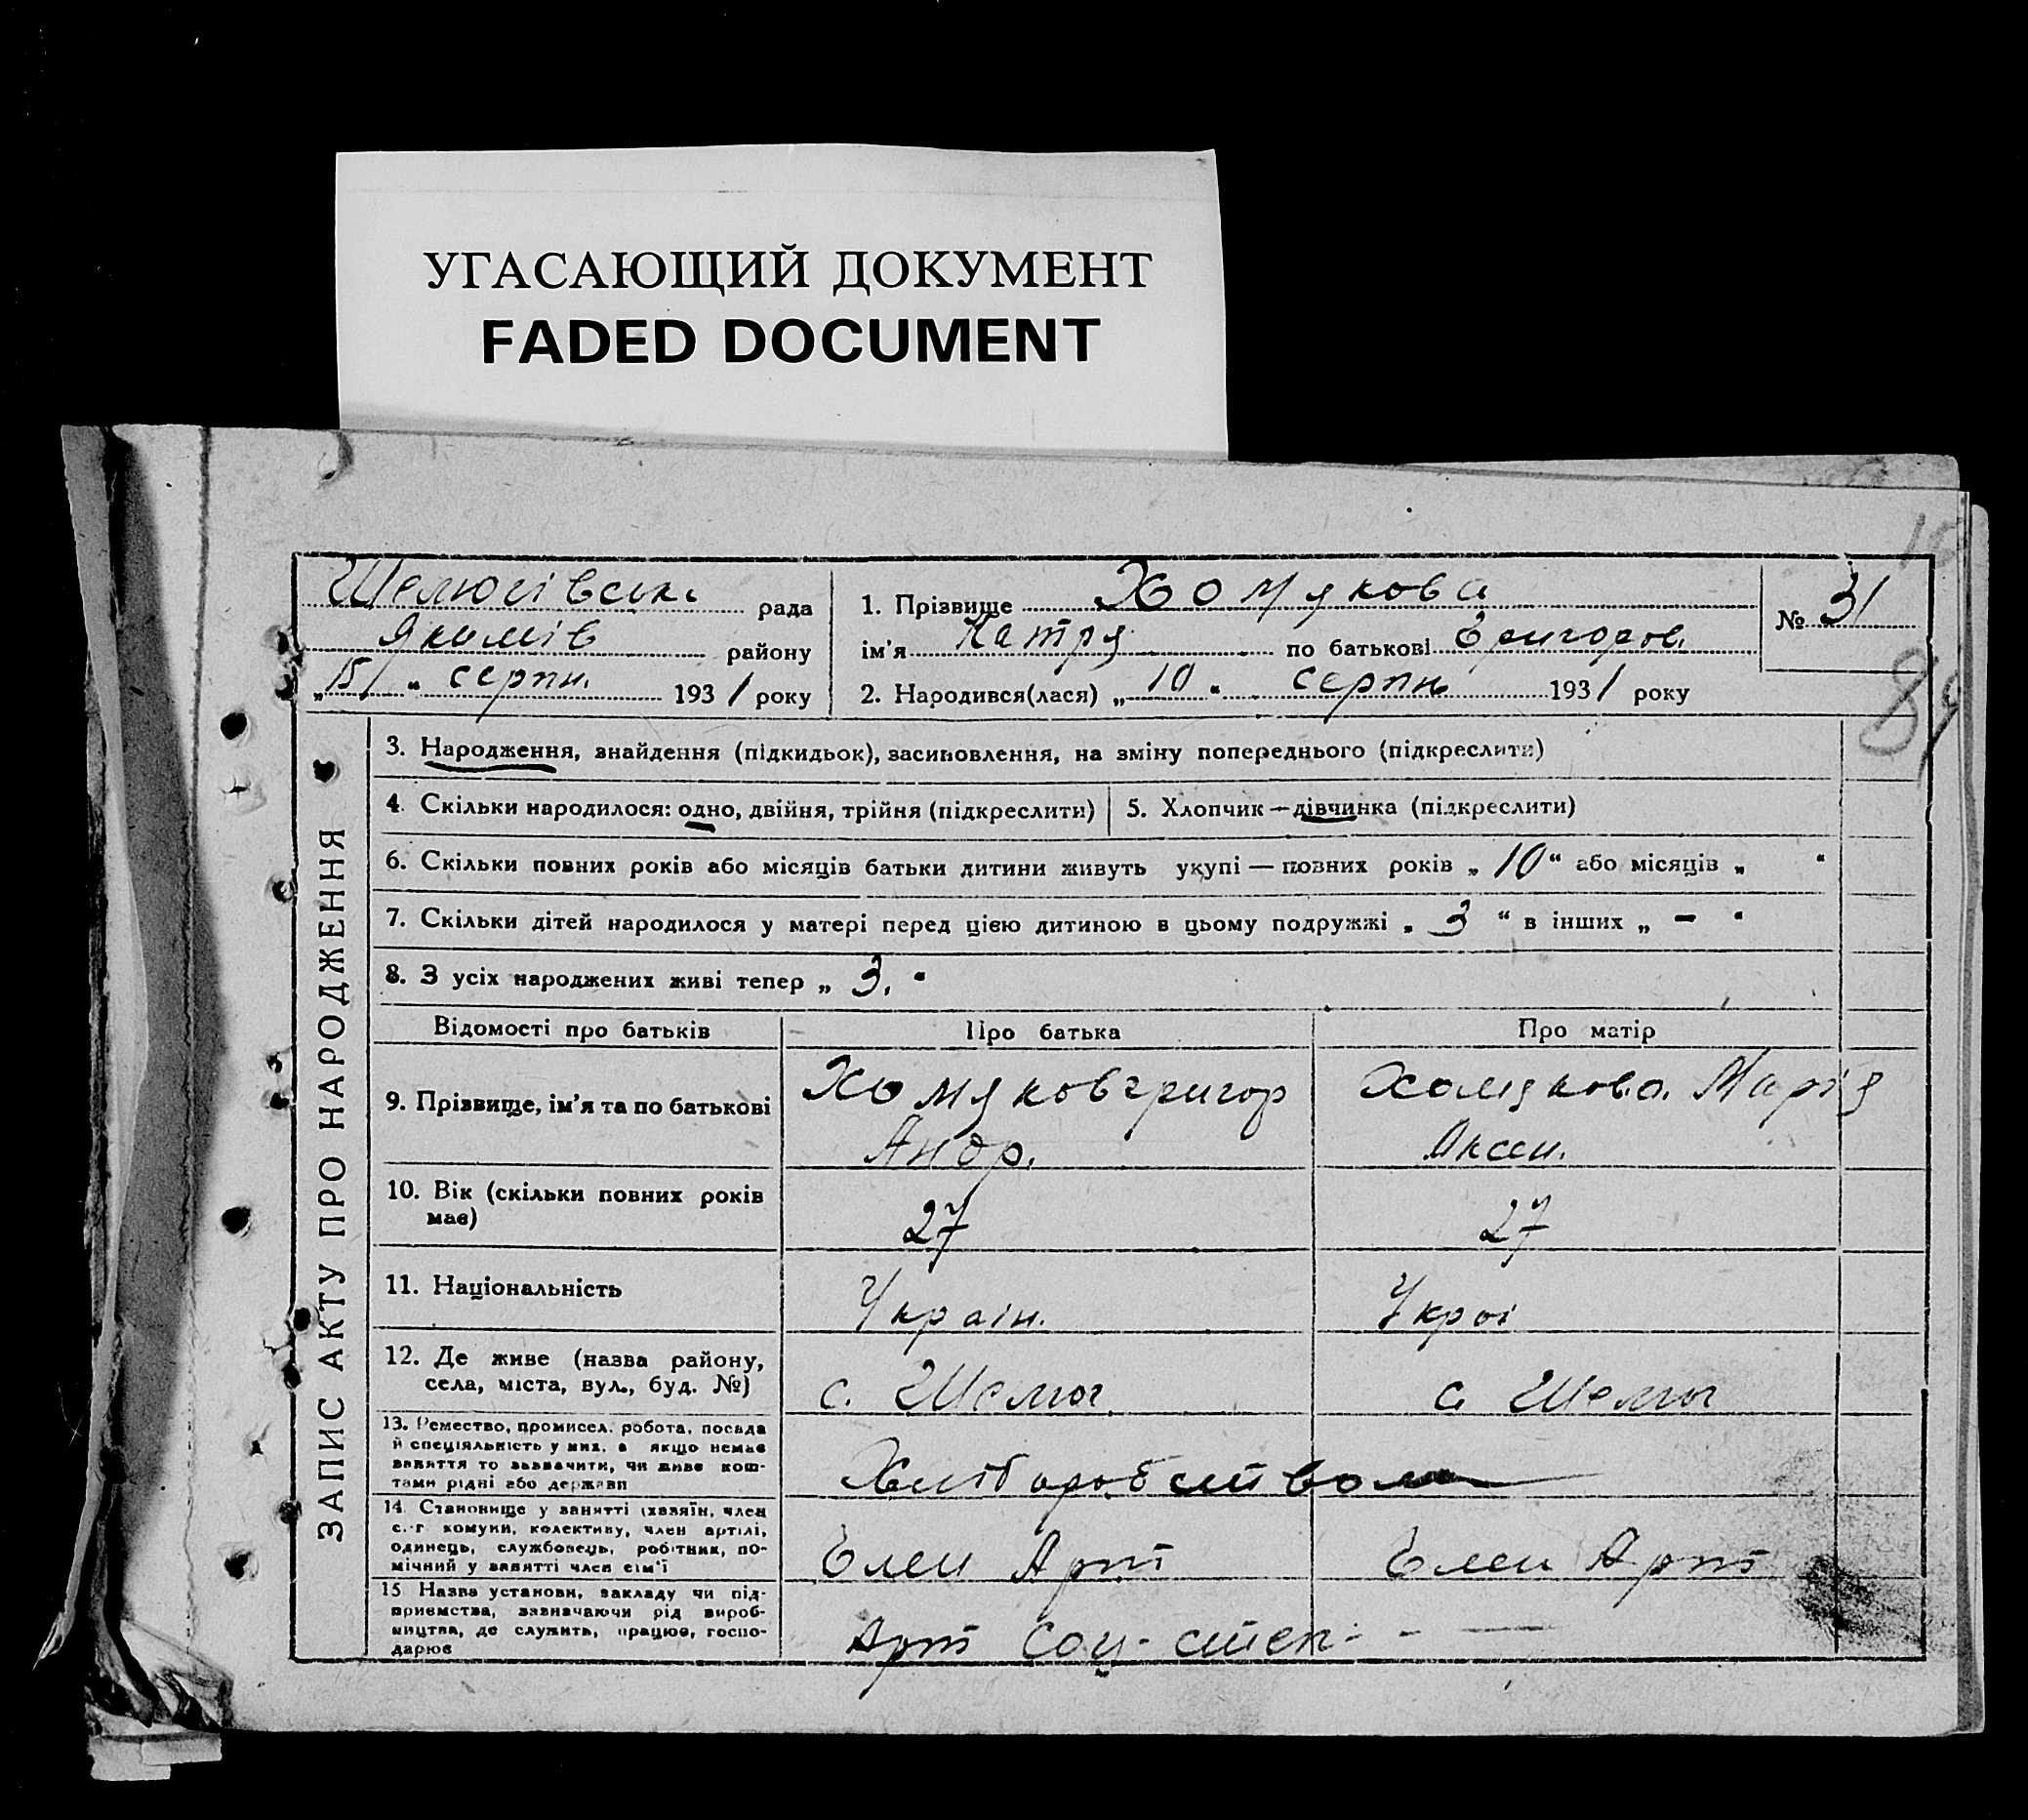 УГАСАЮЩИЙ ДОКУМЕНТ
FADED DOCUMENT
Шелюгівськ рада
Якимів району
„15“ серпн. 1931 року
1. Прізвище Хомякова
ім'я Катря по батькові Григоров.
2. Народився(лася) „10“ серпня 1931 року
№ 31
84
ЗАПИС АКТУ ПРО НАРОДЖЕННЯ
3. Народження, знайдення (підкидьок), засиновлення, на зміну попереднього (підкреслити)
4. Скільки народилося: одно, двійня, трійня (підкреслити)
5. Хлопчик — дівчинка (підкреслити)
6. Скільки повних років або місяців батьки дитини живуть укупі — повних років „10“ або місяців „ “
7. Скільки дітей народилося у матері перед цією дитиною в цьому подружжі „3“ в інших „-“
8. З усіх народжених живі тепер „3.“
Відомості про батьків
Про батька
Про матір
9. Прізвище, ім'я та по батькові
Хомяков Григор
Андр.
Хомякова Марія
Аксен.
10. Вік (скільки повних років
має)
27
27
11. Національність
Украін.
Украі
12. Де живе (назва району,
села, міста, вул., буд. №)
с. Шелюг
с. Шелюг
13. Ремество, промисел, робота, посада
й спеціяльність у них, а якщо немає
заняття то зазначити, чи живе кош-
тами рідні або держави
Хліборобством
14. Становище у занятті (хазяїн, член
с.-г комуни, колективу, член артілі,
одинець, службовець, робітник, по-
мічний у занятті член сім'ї
Член Арт
Член Арт
15 Назва установи, закладу чи під-
приємства, зазначаючи рід вироб-
ництва, де служить, працює, госпо-
дарює
Арт Соц. степ. - —